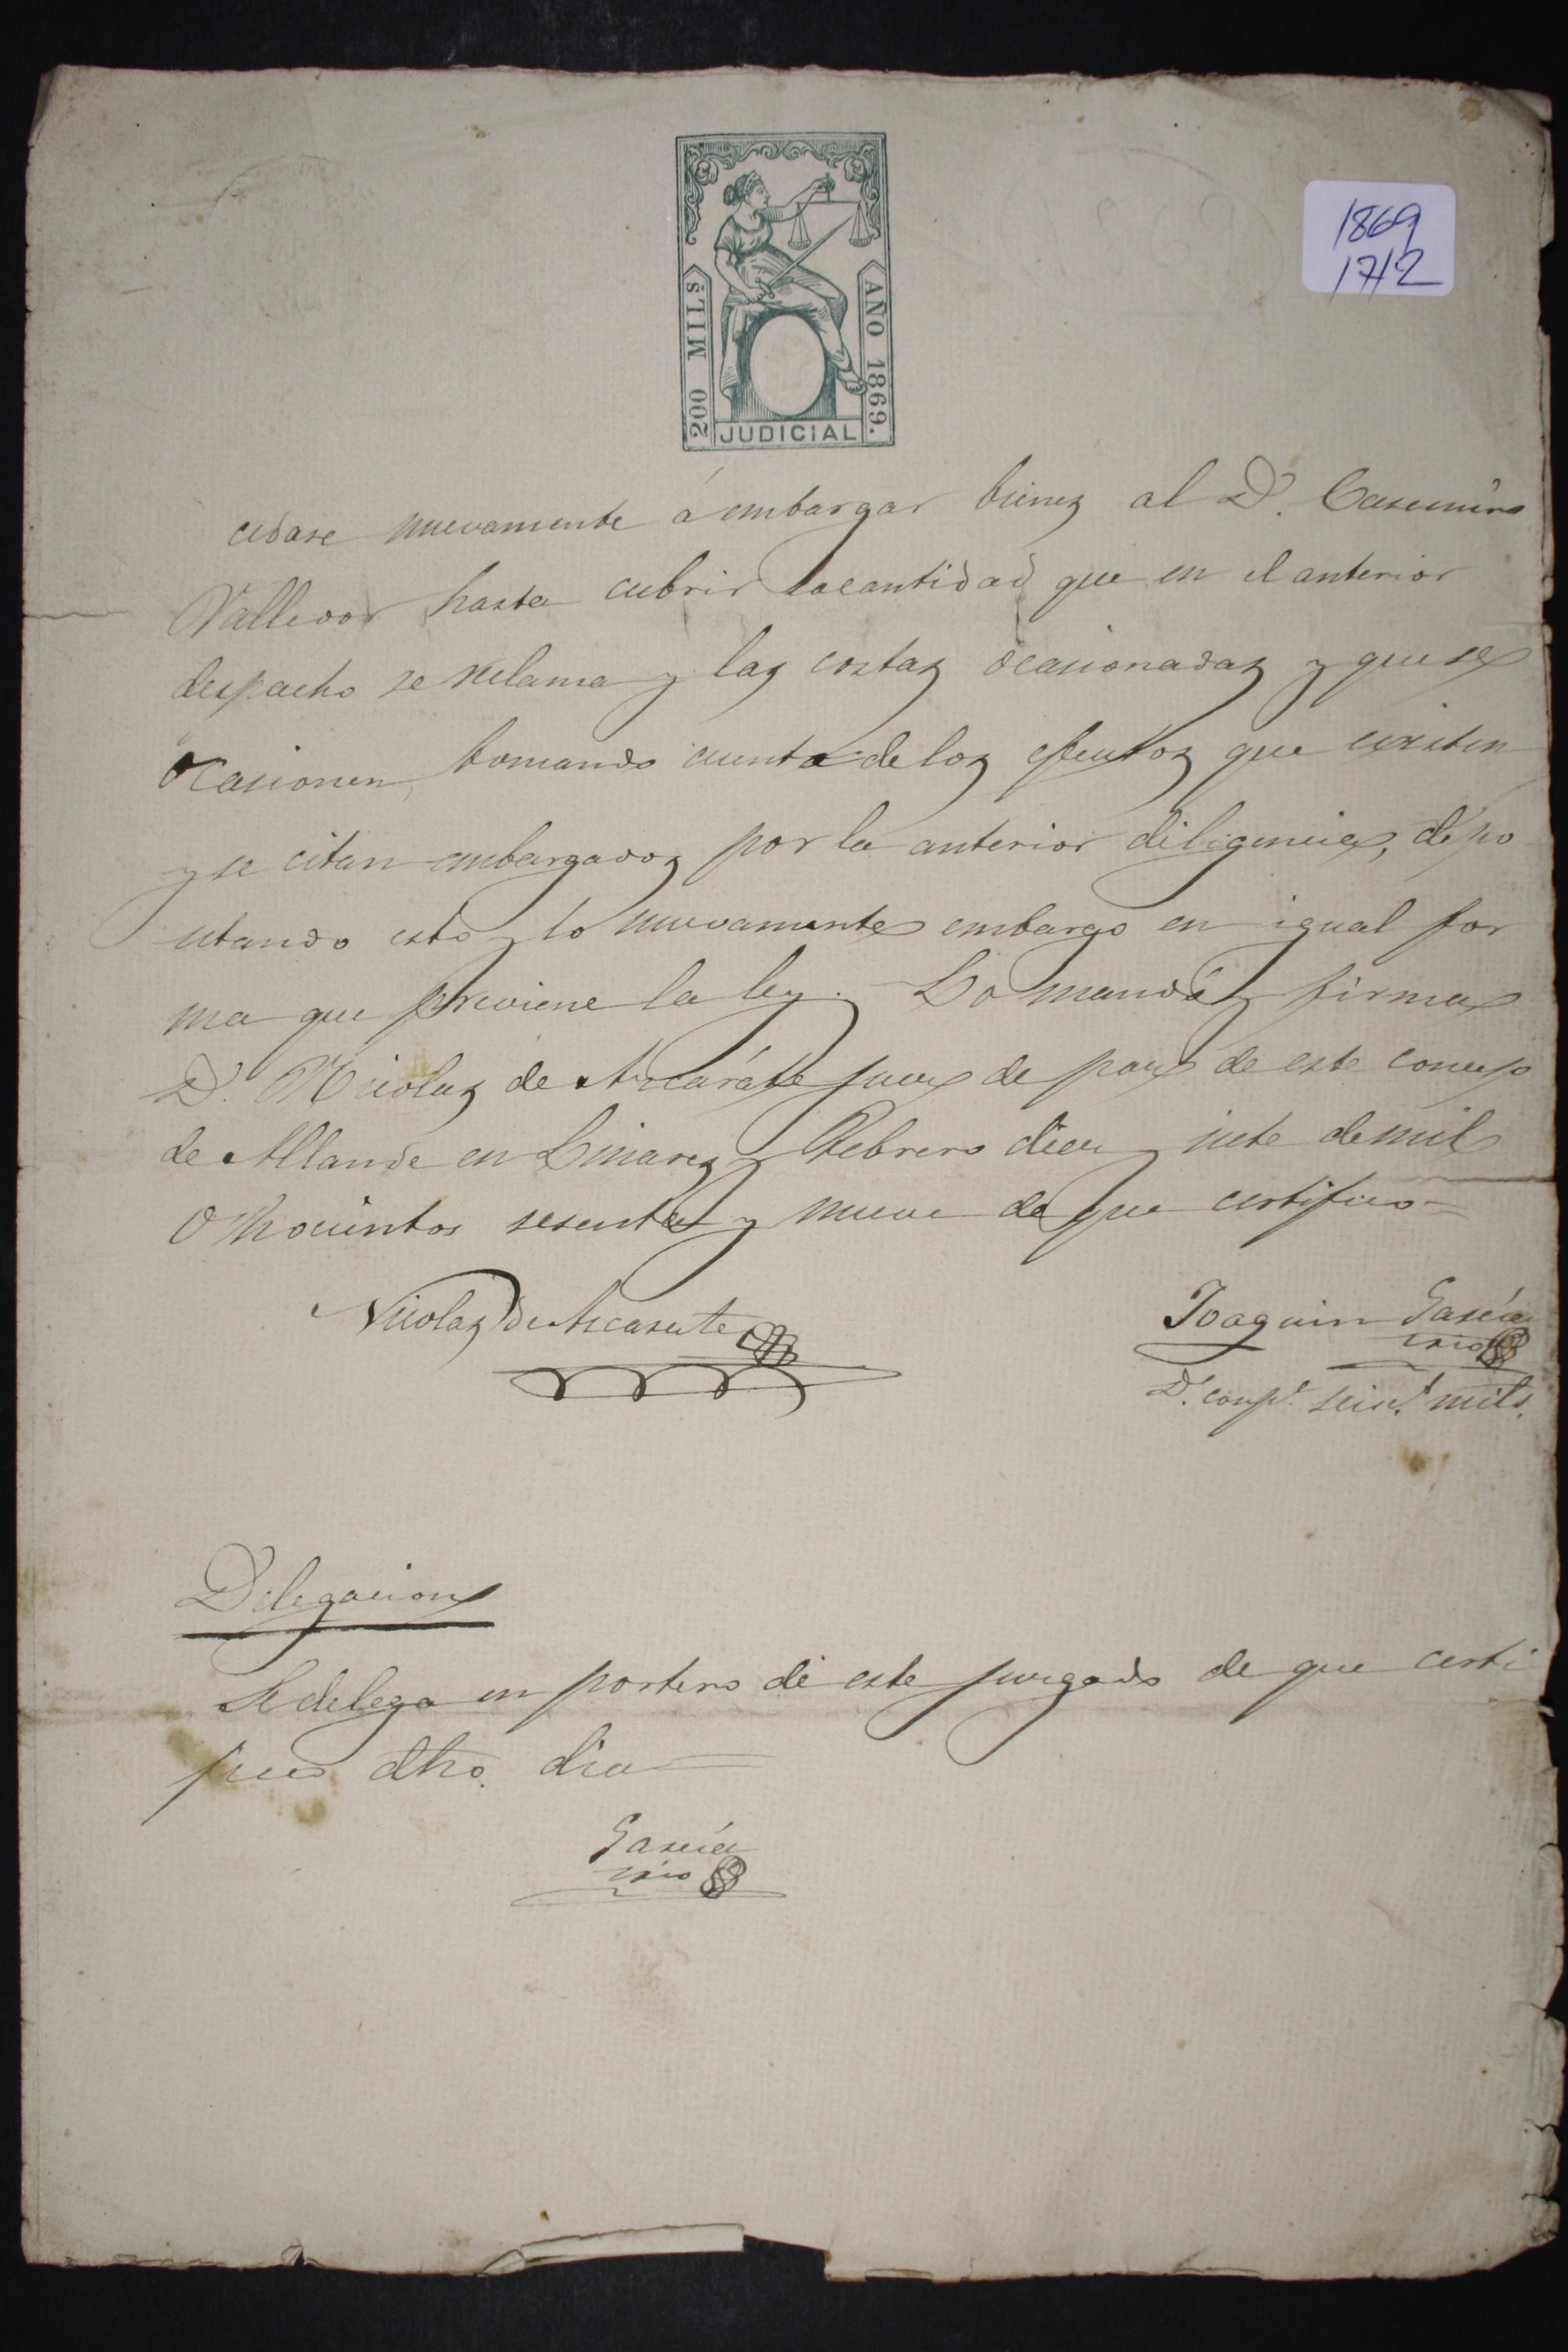 1869
17/2
200 MILS
AÑO 1869.
JUDICIAL
cedase nuevamente á embargar bienes al D. Casemiro
Valledor hasta cubrir la cantidad que en el anterior
despacho se reclama y las costas ocasionadas y que se
ocasionen, tomando cuenta de los efectos que existen
y se citan embargados por la anterior diligencia, depo
sitando esto y lo nuevamente embargo en igual for
ma que previene la ley. Lo mandó y firma
D. Nicolas de Azcárate juez de paz de este concejo
de Allande en Linares y Febrero diez y siete de mil
ochocientos sesenta y nueve de que certifico=
Nicolas de Azcarate
Joaquin García
srio
D.s seis.s mils.
Delegacion
Se delega en portero de este juzgado de que certi
fico dho. dia
García
srio